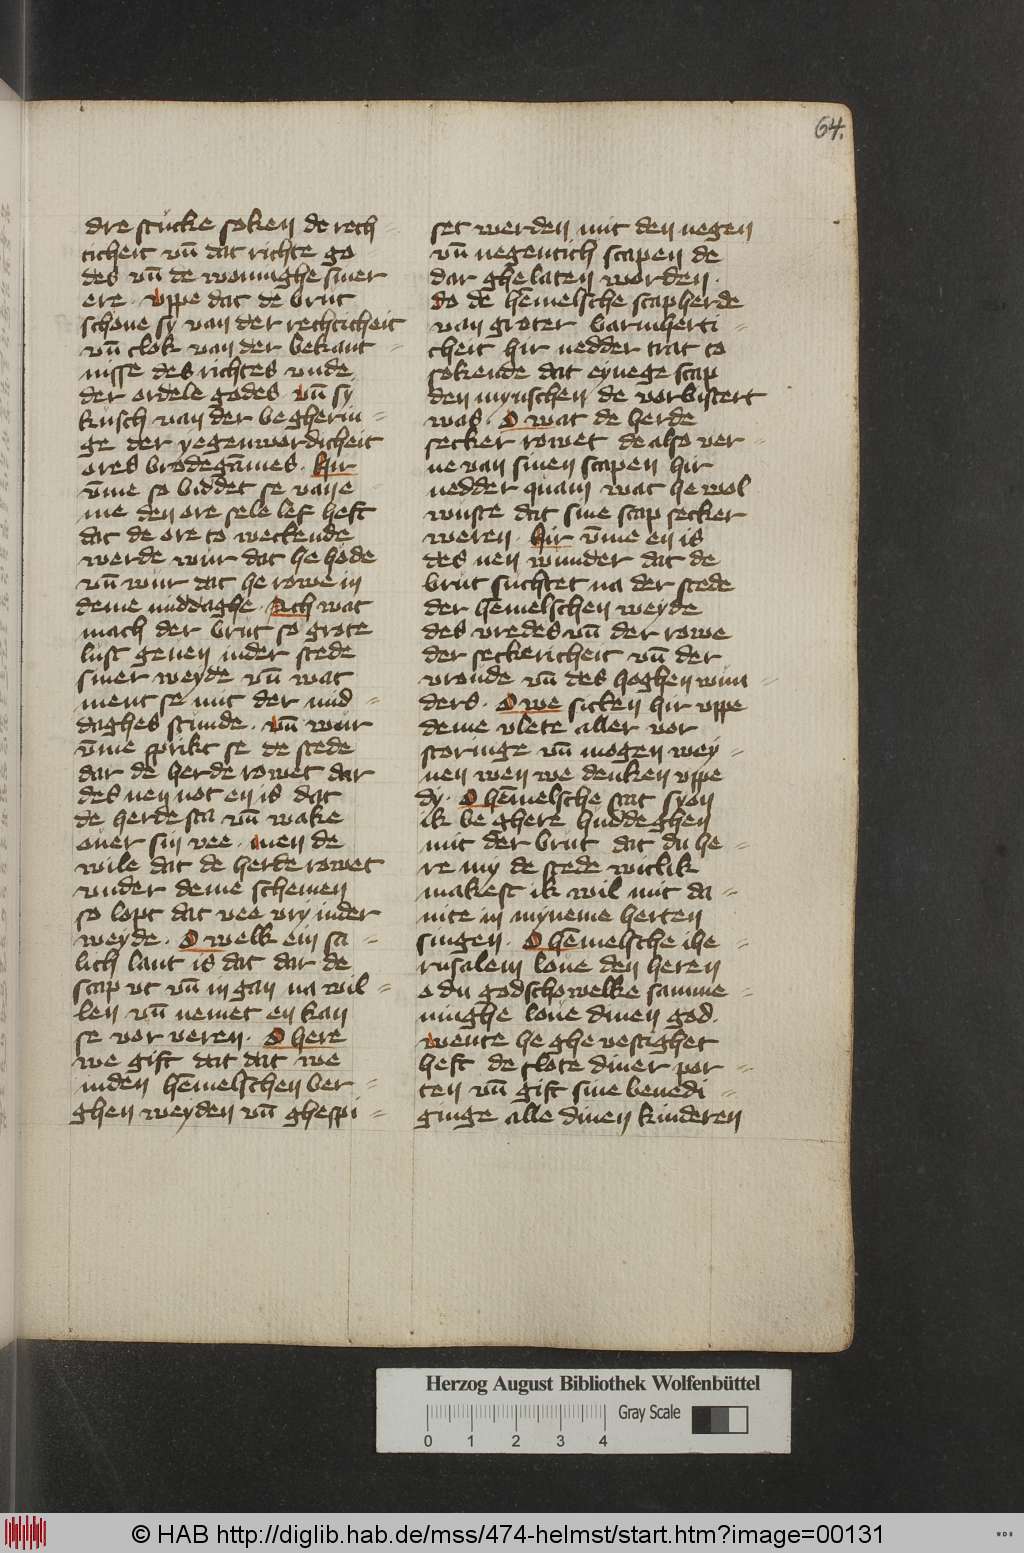 64.
dre stucke soken de rech
ticheit vn̄ dat richte go
des vn̄ de woninghe siner
ere. vppe dat de brut
schone sy van der rechticheit
vn̄ clok van der bekant
nisse des richtes vnde
der ordele godes vn̄ sy
kusch van der begherin
ge der yegenwordicheit
ores brodegāmes. Hir
vm̄e so biddet se van e
me den ore sele lef heft
dat de ore to weckende
werde wur dat he hode
vn̄ wur dat he rowe in
deme middaghe. Ach wat
mach der brut so grote
lust geuen in der stede
siner weyde vn̄ wat
ment se mit der mid
daghes stunde. vn̄ wur
vm̄e sprikt se de stede
dar de herde rowet dar
des nen not en is dat
de herde sta vn̄ wake
ouer sin vee. men de
wile dat de herde rowet
vnder deme schemen
so lopt dat vee vry in der
weyde. O welk ein sa
lich lant is dat dar de
scap vt vn̄ in gan na wil
len vn̄ nemet en kan
se vor veren. O here
we gift dat dat we
in den hēmelschen ber
ghen weyden vn̄ ghespi
set werden mit den negen
vn̄ negentich scapen de
dar ghelaten worden.
do de hēmelsche scapherde
van groter barmherti
cheit hir nedder trat to
sokende dat eynege scap
den mynschen de vorbistert
was. O wat de herde
secker rowet de also ver
ne van sinen scapen hir
nedder quam wat he wol
wuste dat sine scap secker
weren. Hir vm̄e en is
des nen wunder dat de
brut suchtet na der stede
der hēmelschen weyde
des vredes vn̄ der rowe
der seckericheit vn̄ der
vronde vn̄ des hoghen wun
ders. O we sitten hir vppe
deme vlete aller vor
storinge vn̄ mogen wey
nen wen we denken vppe
dy. O hēmelsche stat syon
ik beghere huddeghen
mit der brut dat du he
re my de stede witlik
makest ik wil mit da
uite in myneme herten
singen. O hēmelsche ihe
rusalem loue den heren
o du godschowelke samme
ninghe loue dinen god.
wente he ghevestighet
heft de slote diner por
ten vn̄ gift sine benedi
ginge alle dinen kinderen
Herzog August Bibliothek Wolfenbüttel
Gray Scale
0 1 2 3 4
© HAB http://diglib.hab.de/mss/474-helmst/start.htm?image=00131